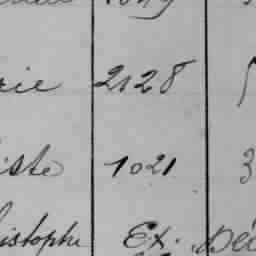 rie 2128 5
iste 1021 3
ristophe Ex. Déc